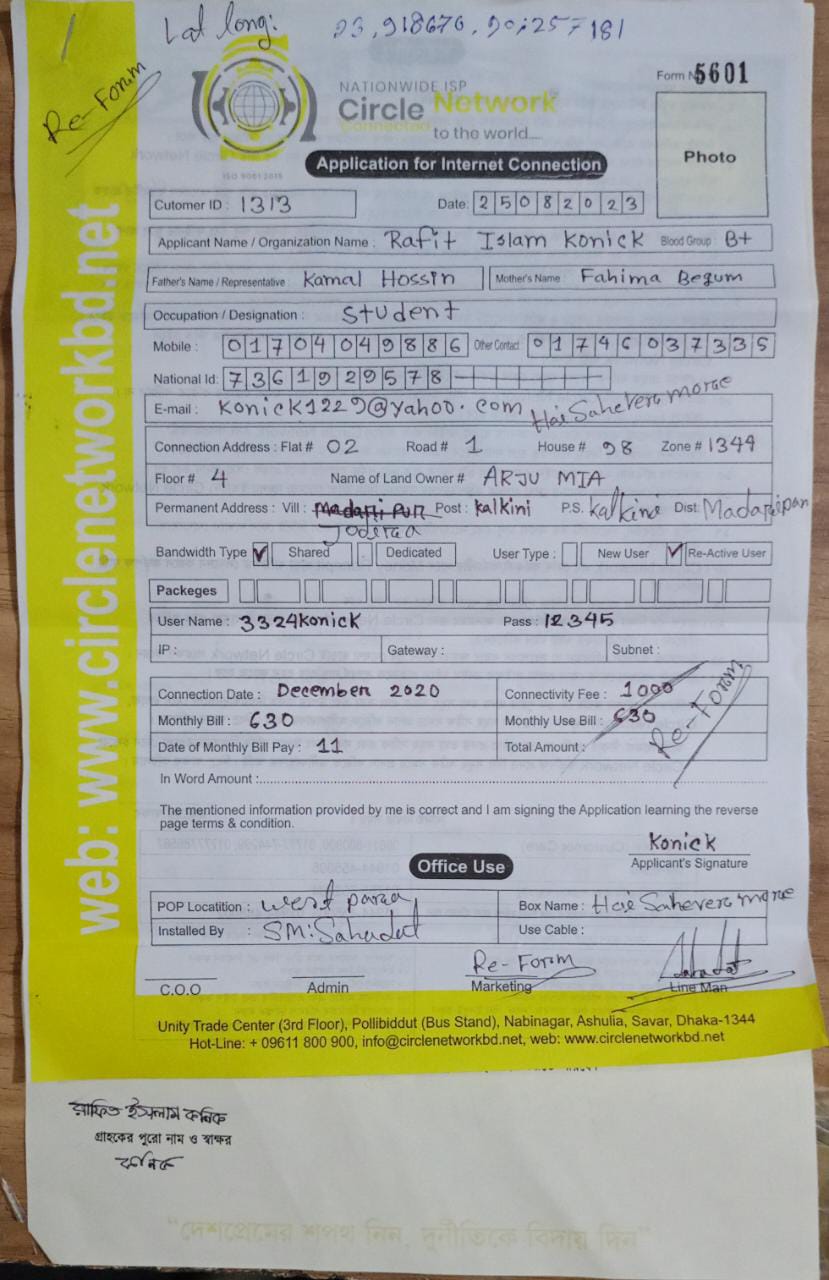 Lat long: 23.918670, 90.257181
Re-Form
NATIONWIDE ISP
Form N 5601
Circle Network
Connected to the world....
ISO 9001:2015
Photo
Application for Internet Connection
Cutomer ID : 1313 Date: 25082023
Applicant Name / Organization Name : Rafit Islam Konick Blood Group B+
Father's Name / Representative Kamal Hossin Mother's Name Fahima Begum
Occupation / Designation : Student
Mobile : 01704049886 Other Contact 01746037335
National Id: 7361929578
E-mail : konick1229@yahoo.com Hai Sahevera more
Connection Address : Flat # 02 Road # 1 House # 98 Zone # 1344
Floor # 4 Name of Land Owner # ARJU MIA
Permanent Address : Vill : Madari Pur Post : kalkini P.S. kalkini Dist.
Bandwidth Type Shared Dedicated User Type : New User Re-Active User
Packeges
User Name : 3324konick Pass : 12345
IP : Gateway : Subnet :
Connection Date : December 2020 Connectivity Fee : 1000
Monthly Bill : 630 Monthly Use Bill : 630
Date of Monthly Bill Pay : 11 Total Amount :
Re-Form
In Word Amount :
The mentioned information provided by me is correct and I am signing the Application learning the reverse
page terms & condition.
Konick
Applicant's Signature
Office Use
POP Locatition : west para Box Name : Hai Sahevera more
Installed By : SM: Sahadat Use Cable :
Re-Form Sahadat
C.O.O Admin Marketing Line Man
Unity Trade Center (3rd Floor), Pollibiddut (Bus Stand), Nabinagar, Ashulia, Savar, Dhaka-1344
Hot-Line: + 09611 800 900, info@circlenetworkbd.net, web: www.circlenetworkbd.net
web: www.circlenetworkbd.net
রাফিত ইসলাম কনিক
গ্রাহকের পুরো নাম ও স্বাক্ষর
কনিক
"দেশপ্রেমের শপথ নিন, দুর্নীতিকে বিদায় দিন"